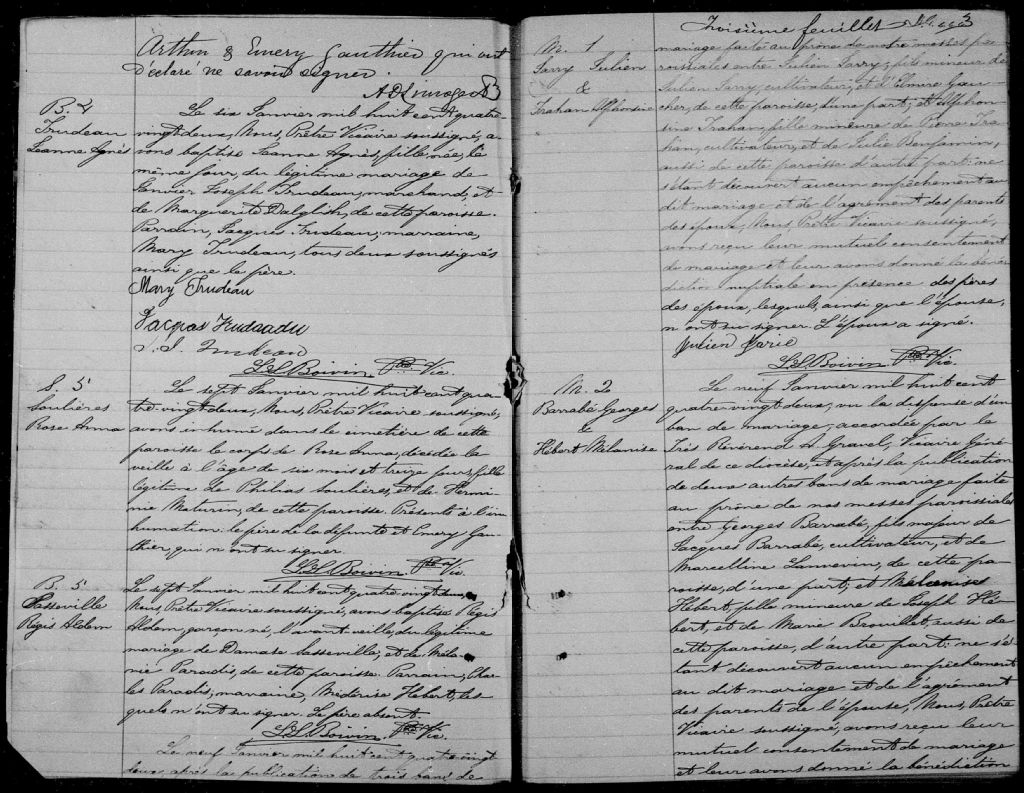 Arthur & Emery Gauthier qui ont
déclaré ne savoir signer.
B. 4
Trudeau
Jeanne Agnès
Le six Janvier mil huit cent quatre
vingt deux, Nous, Prêtre Vicaire soussigné, a-
vons baptisé Jeanne Agnès, fille née, le
même jour, du légitime mariage de
Janvier Joseph Trudeau, marchand, et
de Marguerite Dalglish, de cette paroisse.
Parrain, Jacques Trudeau; marraine,
Mary Trudeau, tous deux soussignés
ainsi que le père.
Mary Trudeau
Jacques Trudeau
J. J. Trudeau
L.S. Boivin Ptre Vic.
S. 5
Soulières
Rose Anna
Le sept Janvier mil huit cent qua
tre-vingt deux, Nous, Prêtre Vicaire soussigné,
avons inhumé dans le cimetière de cette
paroisse le corps de Rose Anna, décédée la
veille à l'âge de six mois et treize jours, fille
légitime de Philias Soulières, et de Hermi-
nie Maturin, de cette paroisse. Présents à l'in
humation le père de la défunte et Emery Gau-
thier, qui n'ont su signer.
L.S. Boivin Ptre Vic.
B. 5
Lasseville
Régis Aldem
Le sept Janvier mil huit cent quatre vingt deux,
Nous, Prêtre Vicaire soussigné, avons baptisé Régis
Aldem, garçon né, l'avant-veille, du légitime
mariage de Damase Lasseville, et de Méla-
nie Paradis, de cette paroisse. Parrain, Char
les Paradis, marraine, Médérise Hébert, les
quels n'ont su signer. Le père absent.
L.S. Boivin Ptre Vic.
Le neuf Janvier mil huit cent quatre vingt
deux, après la publication de trois bans de
Troisième feuillet 3
M. 1
Sarry Julien
&
Trahan Alphonsine
mariage faite au prône de notre messes pa-
roissiales entre Julien Sarry, fils mineur de
Julien Sarry, cultivateur, et d'Elmire Gau-
cher, de cette paroisse, d'une part; et Alphon-
sine Trahan, fille mineure de Pierre Tra-
han, cultivateur, et de Julie Benjamin,
aussi de cette paroisse d'autre part: ne
s'étant découvert aucun empêchement au
dit mariage et de l'agrément des parents
des époux, Nous, Prêtre Vicaire soussigné,
avons reçu leur mutuel consentement
de mariage et leur avons donné la béné-
diction nuptiale en présence des pères
des époux, lesquels, ainsi que l'épouse,
n'ont su signer. L'époux a signé.
L.S. Boivin Ptre Vic.
M. 2
Barrabé Georges
&
Hébert Mélanise
Le neuf Janvier mil huit cent
quatre vingt deux, vu la dispense d'un
ban de mariage, accordée par le
Très Révérend A Gravel, Vicaire Géné-
ral de ce diocèse, et après la publication
de deux autres bans de mariage faite
au prône de nos messes paroissiales
entre Georges Barrabé, fils majeur de
Jacques Barrabé, cultivateur, et de
Marcelline Sansevin, de cette pa-
roisse, d'une part, et Mélanise
Hébert, fille mineure de Joseph Hé-
bert, et de Marie Brouillet, aussi de
cette paroisse, d'autre part: ne s'é-
tant découvert aucun empêchement
au dit mariage et de l'agrément
des parents de l'épouse, Nous, Prêtre
Vicaire soussigné, avons reçu leur
mutuel consentement de mariage
et leur avons donné la bénédiction